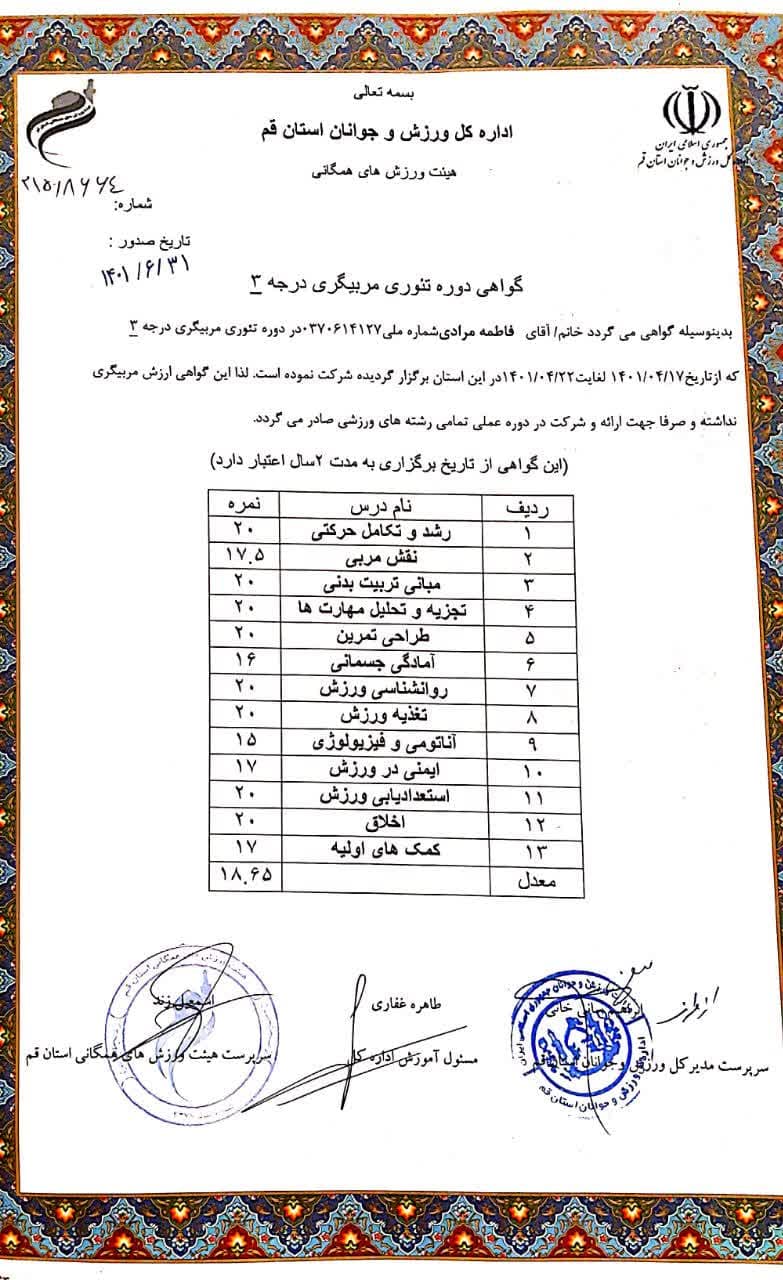 بسمه تعالی
اداره کل ورزش و جوانان استان قم
هیئت ورزش های همگانی
جمهوری اسلامی ایران
کل ورزش و جوانان استان قم
شماره:
تاریخ صدور :
۱۴۰۱/۶/۳۱
گواهی دوره تئوری مربیگری درجه ۳
بدینوسیله گواهی می گردد خانم/ آقای فاطمه مرادی شماره ملی ۰۳۷۰۶۱۴۱۲۷ در دوره تئوری مربیگری درجه ۳
که ازتاریخ ۱۴۰۱/۰۴/۱۷ لغایت ۱۴۰۱/۰۴/۲۲ در این استان برگزار گردیده شرکت نموده است. لذا این گواهی ارزش مربیگری
نداشته و صرفا جهت ارائه و شرکت در دوره عملی تمامی رشته های ورزشی صادر می گردد.
(این گواهی از تاریخ برگزاری به مدت ۲سال اعتبار دارد)
ردیف نام درس نمره
۱ رشد و تکامل حرکتی ۲۰
۲ نقش مربی ۱۷.۵
۳ مبانی تربیت بدنی ۲۰
۴ تجزیه و تحلیل مهارت ها ۲۰
۵ طراحی تمرین ۲۰
۶ آمادگی جسمانی ۱۶
۷ روانشناسی ورزش ۲۰
۸ تغذیه ورزش ۲۰
۹ آناتومی و فیزیولوژی ۱۵
۱۰ ایمنی در ورزش ۱۷
۱۱ استعدادیابی ورزش ۲۰
۱۲ اخلاق ۲۰
۱۳ کمک های اولیه ۱۷
معدل ۱۸.۶۵
از طرف
طاهره غفاری
اسمعیل زند
سرپرست مدیر کل ورزش و جوانان استان قم
مسئول آموزش اداره کل
سرپرست هیئت ورزش های همگانی استان قم
اداره کل ورزش و جوانان استان قم